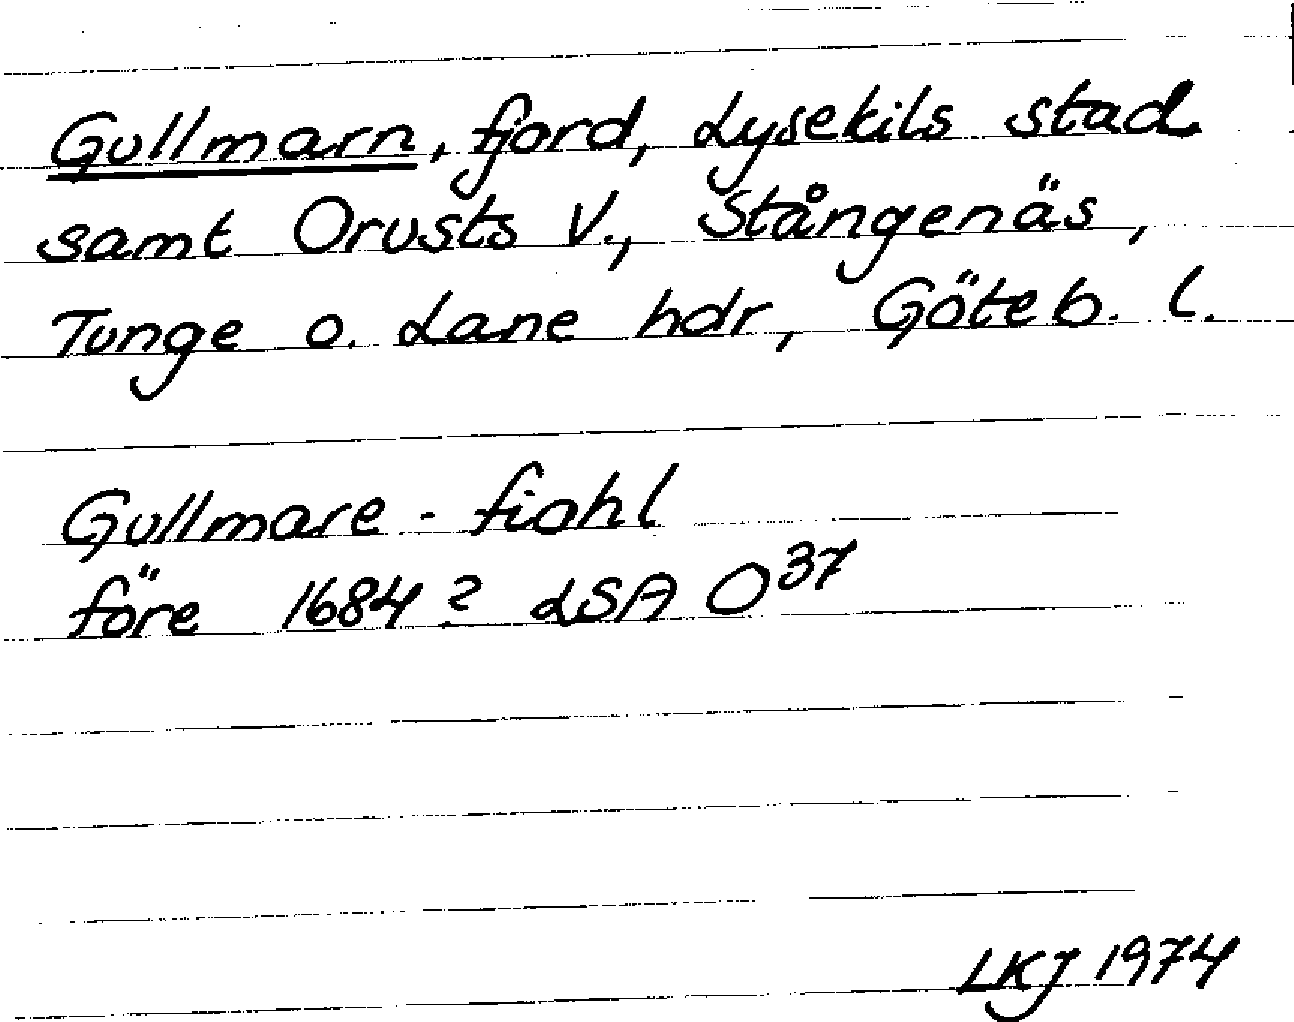 Gullmarn, fjord, Lysekils stad
samt Orusts V., Stångenäs,
Tunge o. Lane hdr, Göteb. l.
Gullmare - fiohl
före 1684? LSA O³⁷
LKJ 1974